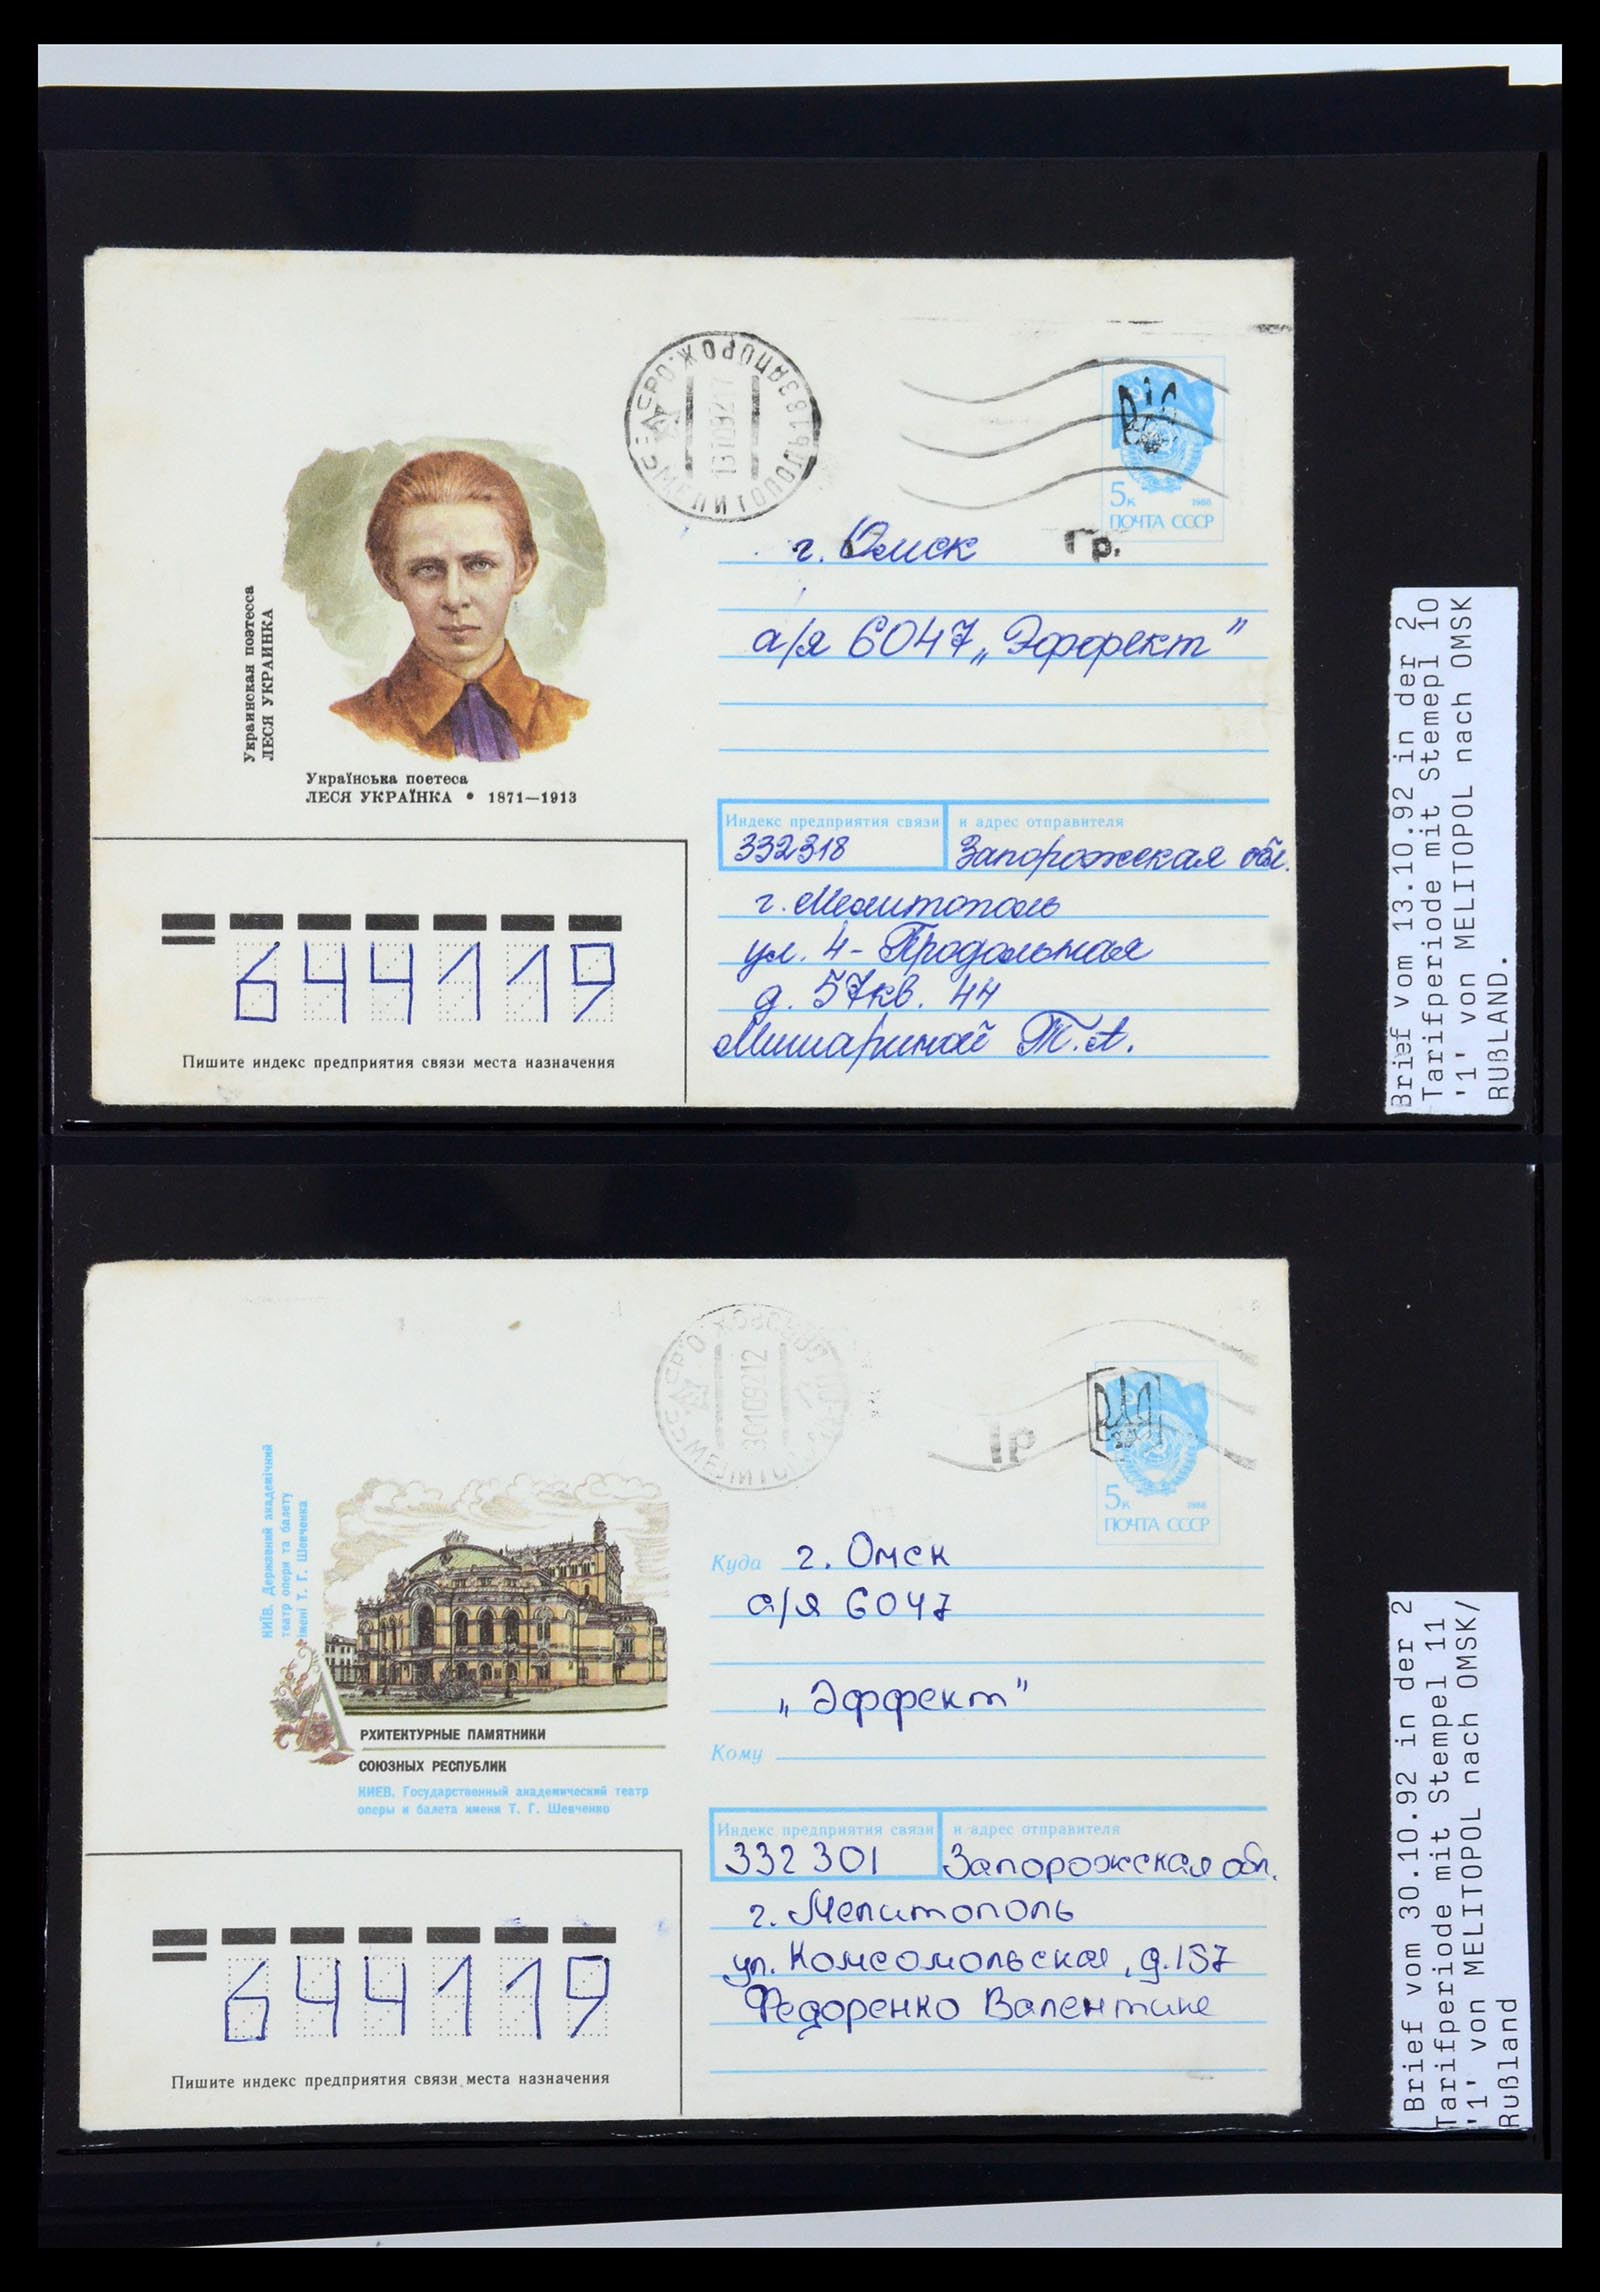 Украинская поэтесса
ЛЕСЯ УКРАИНКА
Українська поетеса
ЛЕСЯ УКРАЇНКА • 1871—1913
131092 17
5к 1988
ПОЧТА СССР
Гр.
г. Омск
а/я 6047 „Эффект"
Индекс предприятия связи и адрес отправителя
332318 Запорожская обл.
г. Мелитополь
ул. 4-Продольная
д. 57 кв. 44
Мишариной Т.А.
644119
Пишите индекс предприятия связи места назначения
Brief vom 13.10.92 in der 2
Tarifperiode mit Stemepl 10
'1' von MELITOPOL nach OMSK
RUßLAND.
КИЇВ. Державний академічний
театр опери та балету
імені Т. Г. Шевченка
АРХИТЕКТУРНЫЕ ПАМЯТНИКИ
СОЮЗНЫХ РЕСПУБЛИК
КИЕВ. Государственный академический театр
оперы и балета имени Т. Г. Шевченко
301092 12
5к 1988
ПОЧТА СССР
Куда г. Омск
а/я 6047
„Эффект"
Кому
Индекс предприятия связи и адрес отправителя
332301 Запорожская обл.
г. Мелитополь
ул. Комсомольская, д. 157
Федоренко Валентине
644119
Пишите индекс предприятия связи места назначения
Brief vom 30.10.92 in der 2
Tarifperiode mit Stempel 11
'1' von MELITOPOL nach OMSK/
Rußland